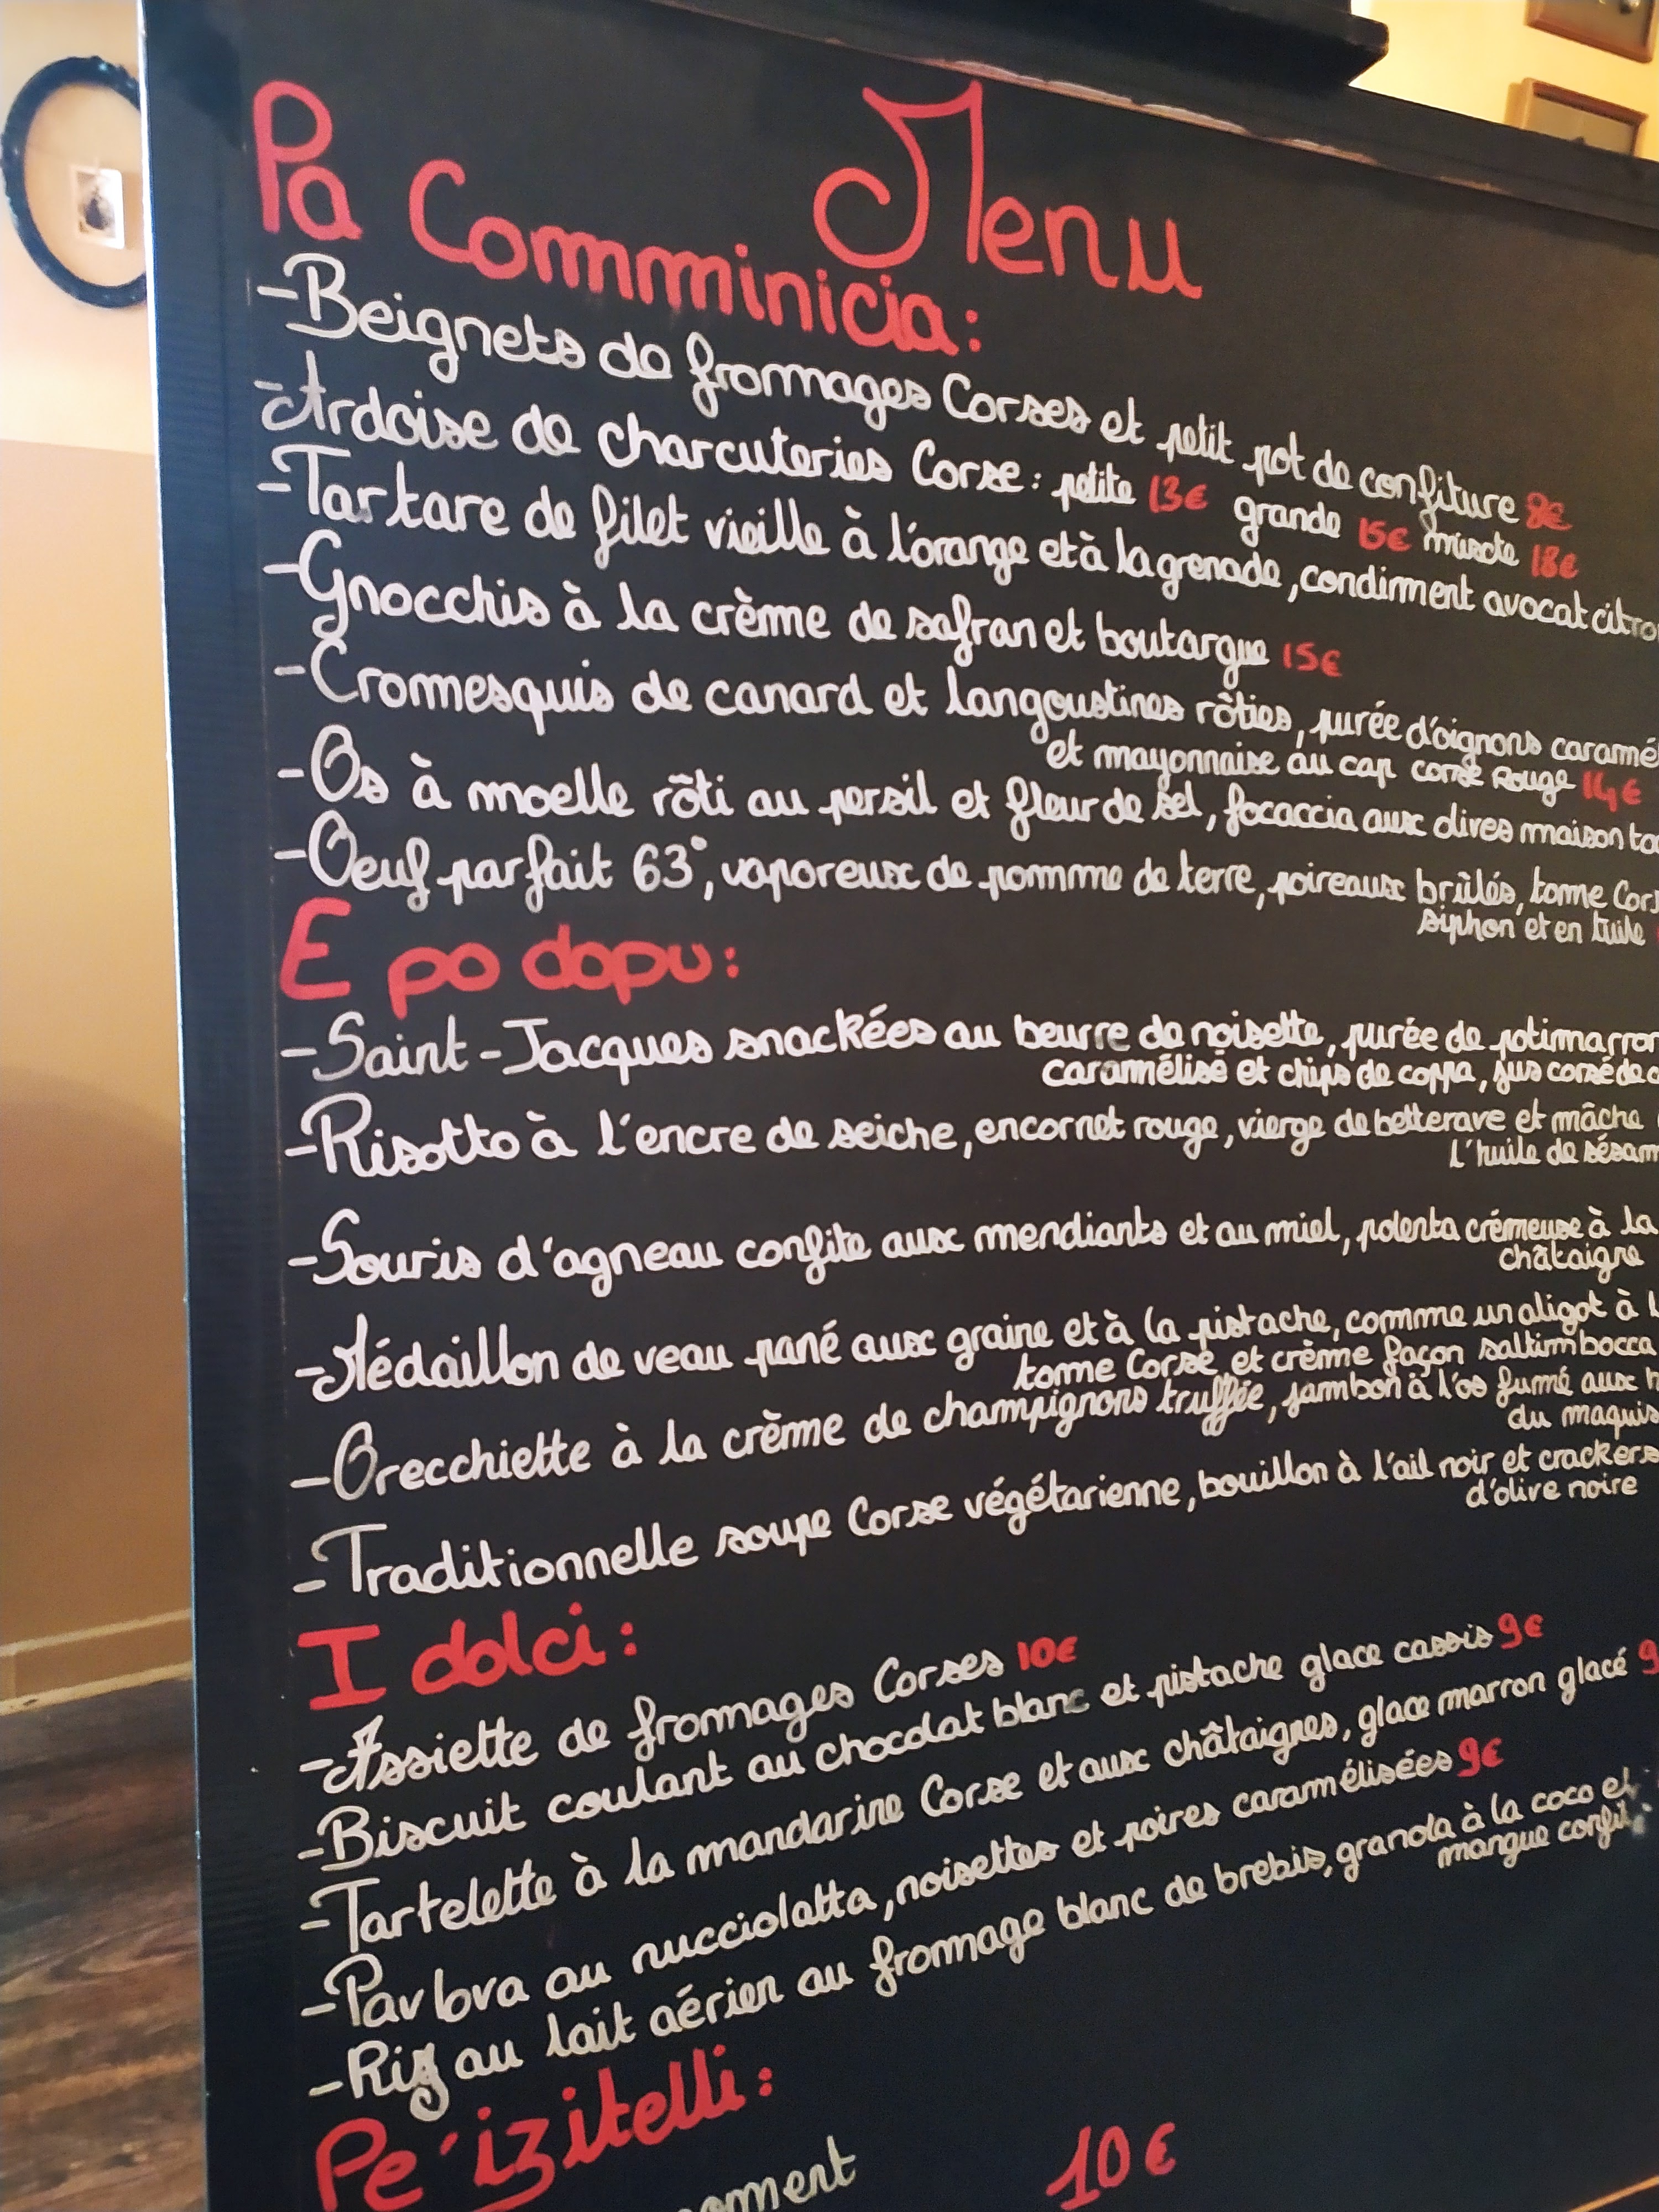 Menu
Pa Comminicia:
- Beignets de fromages Corses et petit pot de confiture 8€
- Ardoise de charcuteries Corse : petite 13€ grande 15€ mixte 18€
- Tartare de filet vieille à l'orange et à la grenade, condiment avocat citro
- Gnocchis à la crème de safran et boutargue 15€
- Cromesquis de canard et langoustines rôties, purée d'oignons caramé
et mayonnaise au cap corse Rouge 14€
- Os à moelle rôti au persil et fleur de sel, focaccia aux olives maison to
- Oeuf parfait 63°, vaporeux de pomme de terre, poireaux brûlés, tome Cors
siphon et en tuile
E po dopu:
- Saint-Jacques snackées au beurre de noisette, purée de potimarron
caramélisé et chips de coppa, jus corsé de
- Risotto à l'encre de seiche, encornet rouge, vierge de betterave et mâche
l'huile de sésam
- Souris d'agneau confite aux mendiants et au miel, polenta crémeuse à la
châtaigne
- Médaillon de veau pané aux graine et à la pistache, comme un aligot à l
tome Corse et crème façon saltimbocca
- Orecchiette à la crème de champignons truffée, jambon à l'os fumé aux h
du maquis
- Traditionnelle soupe Corse végétarienne, bouillon à l'ail noir et crackers
d'olive noire
I dolci:
- Assiette de fromages Corses 10€
- Biscuit coulant au chocolat blanc et pistache glace cassis 9€
- Tartelette à la mandarine Corse et aux châtaignes, glace marron glacé 9
- Pavlova au nucciolatta, noisettes et poires caramélisées 9€
- Riz au lait aérien au fromage blanc de brebis, granola à la coco et
mangue confit
Pe'izitelli:
10€